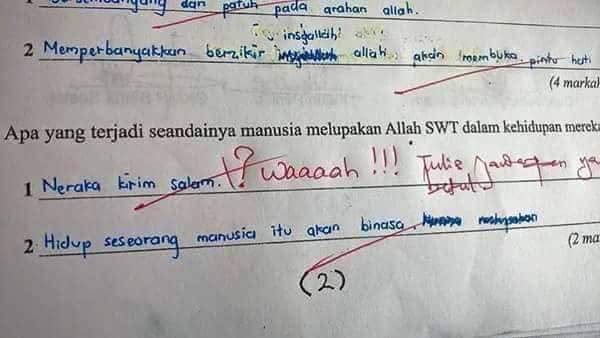 dan patuh pada arahan allah.
insyallah
2 Memperbanyakkan berzikir allah, akan membuka pintu hati
(4 markah
Apa yang terjadi seandainya manusia melupakan Allah SWT dalam kehidupan mereka
1 Neraka kirim salam. ? Waaaah !!! Tulis jawapan ya
betul
2 Hidup seseorang manusia itu akan binasa.
(2 ma
(2)